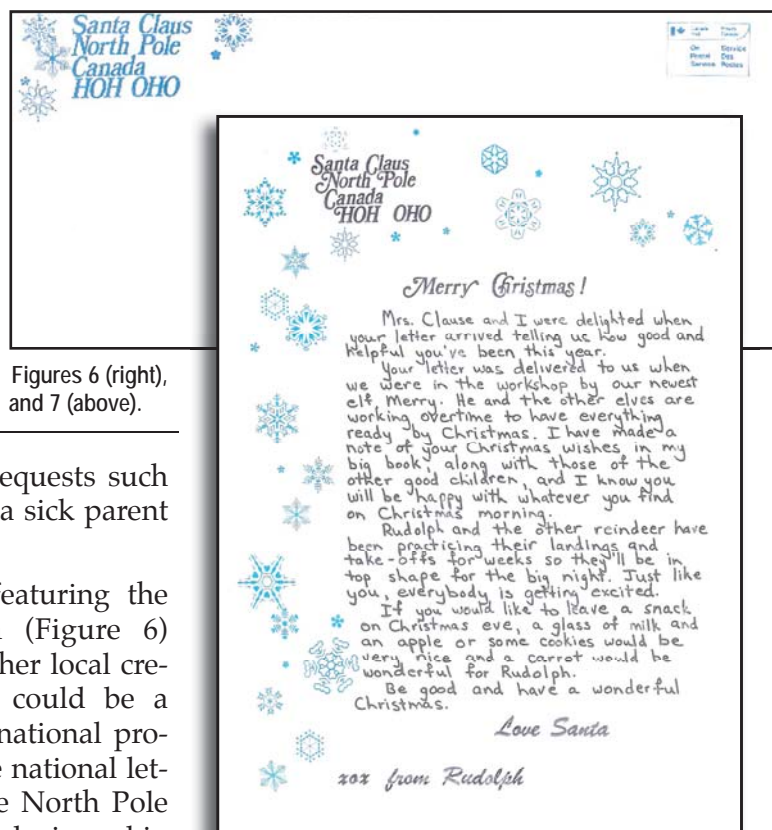 Santa Claus
North Pole
Canada
HOH OHO
On Service
Postal Des
Service Postes
Santa Claus
North Pole
Canada
HOH OHO
Merry Christmas!
Mrs. Clause and I were delighted when
your letter arrived telling us how good and
helpful you've been this year.
Your letter was delivered to us when
we were in the workshop by our newest
elf, Merry. He and the other elves are
working overtime to have everything
ready by Christmas. I have made a
note of your Christmas wishes in my
big book, along with those of the
other good children, and I know you
will be happy with whatever you find
on Christmas morning.
Rudolph and the other reindeer have
been practicing their landings and
take-offs for weeks so they'll be in
top shape for the big night. Just like
you, everybody is getting excited.
If you would like to leave a snack
on Christmas eve, a glass of milk and
an apple or some cookies would be
very nice and a carrot would be
wonderful for Rudolph.
Be good and have a wonderful
Christmas.
Love Santa
xox from Rudolph
Figures 6 (right),
and 7 (above).
equests such
a sick parent
featuring the
(Figure 6)
her local cre-
could be a
national pro-
e national let-
e North Pole